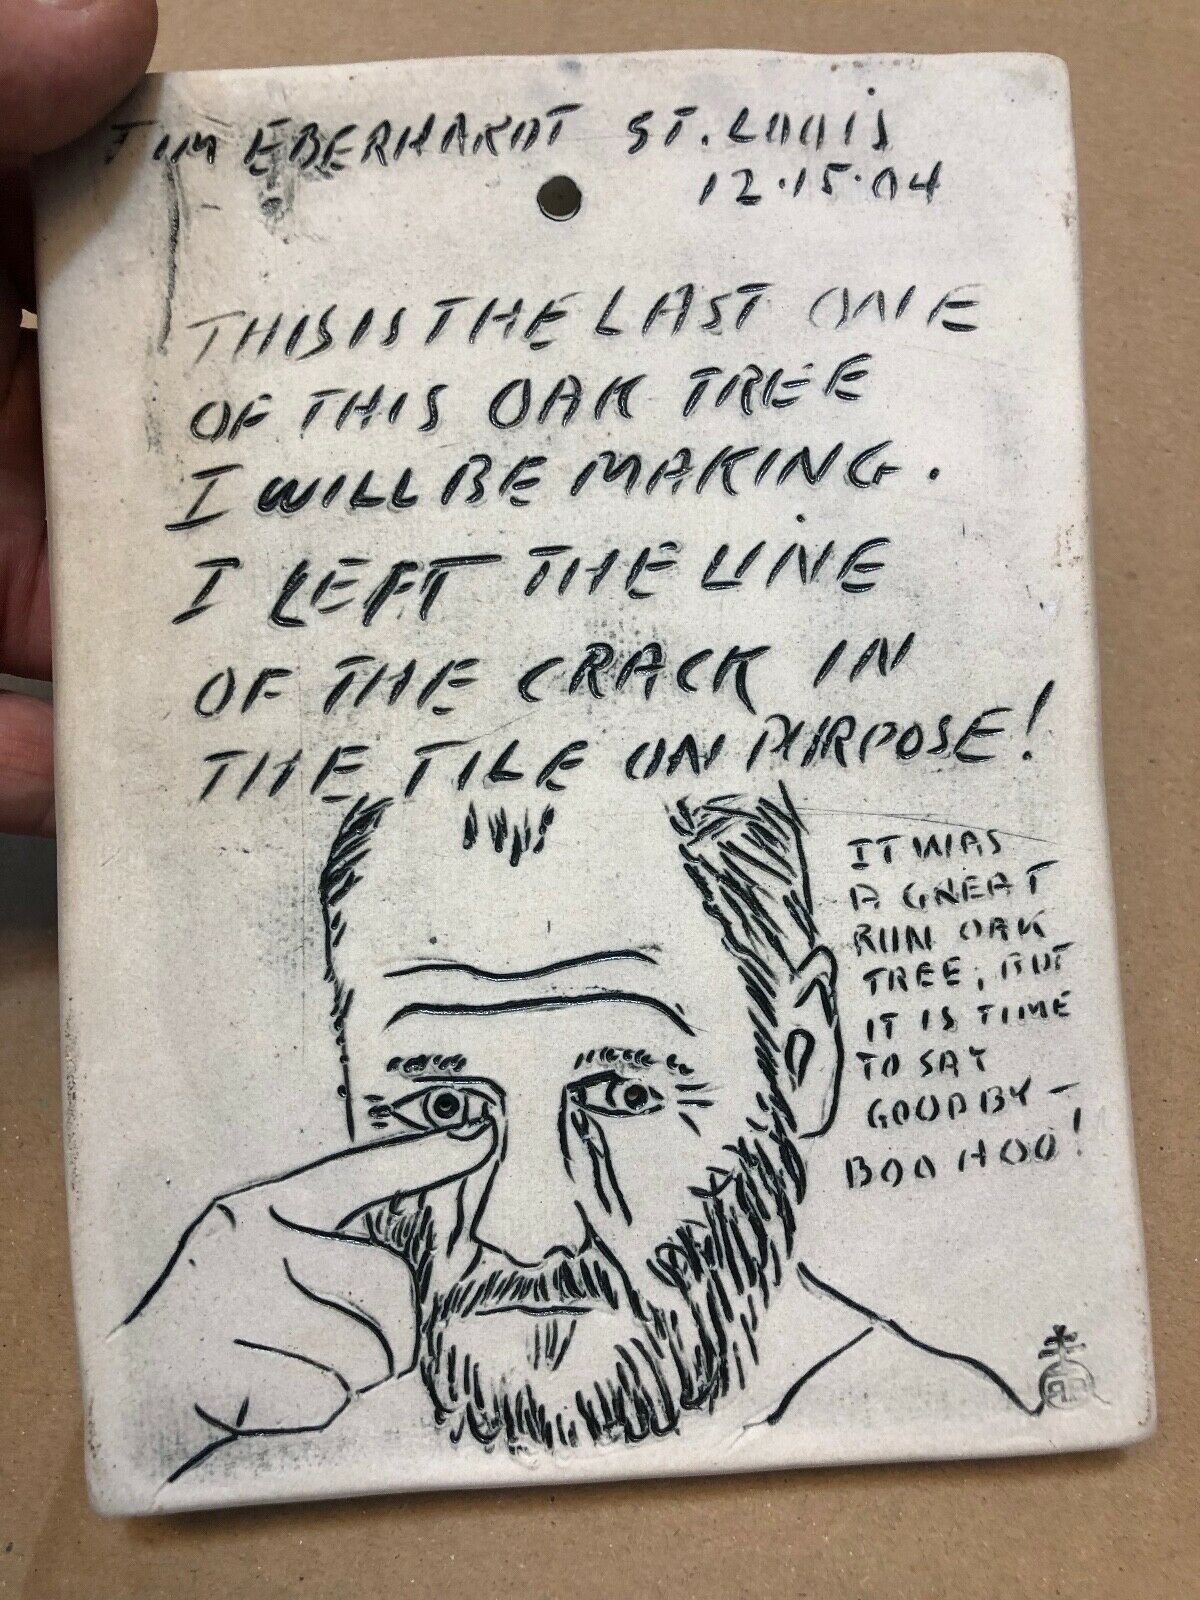 TIM EBERHARDT ST. LOUIS
12.15.04
THIS IS THE LAST ONE
OF THIS OAK TREE
I WILL BE MAKING.
I LEFT THE LINE
OF THE CRACK IN
THE TILE ON PURPOSE!
IT WAS
A GREAT
RUN OAK
TREE, BUT
IT IS TIME
TO SAY
GOODBY -
BOO HOO!